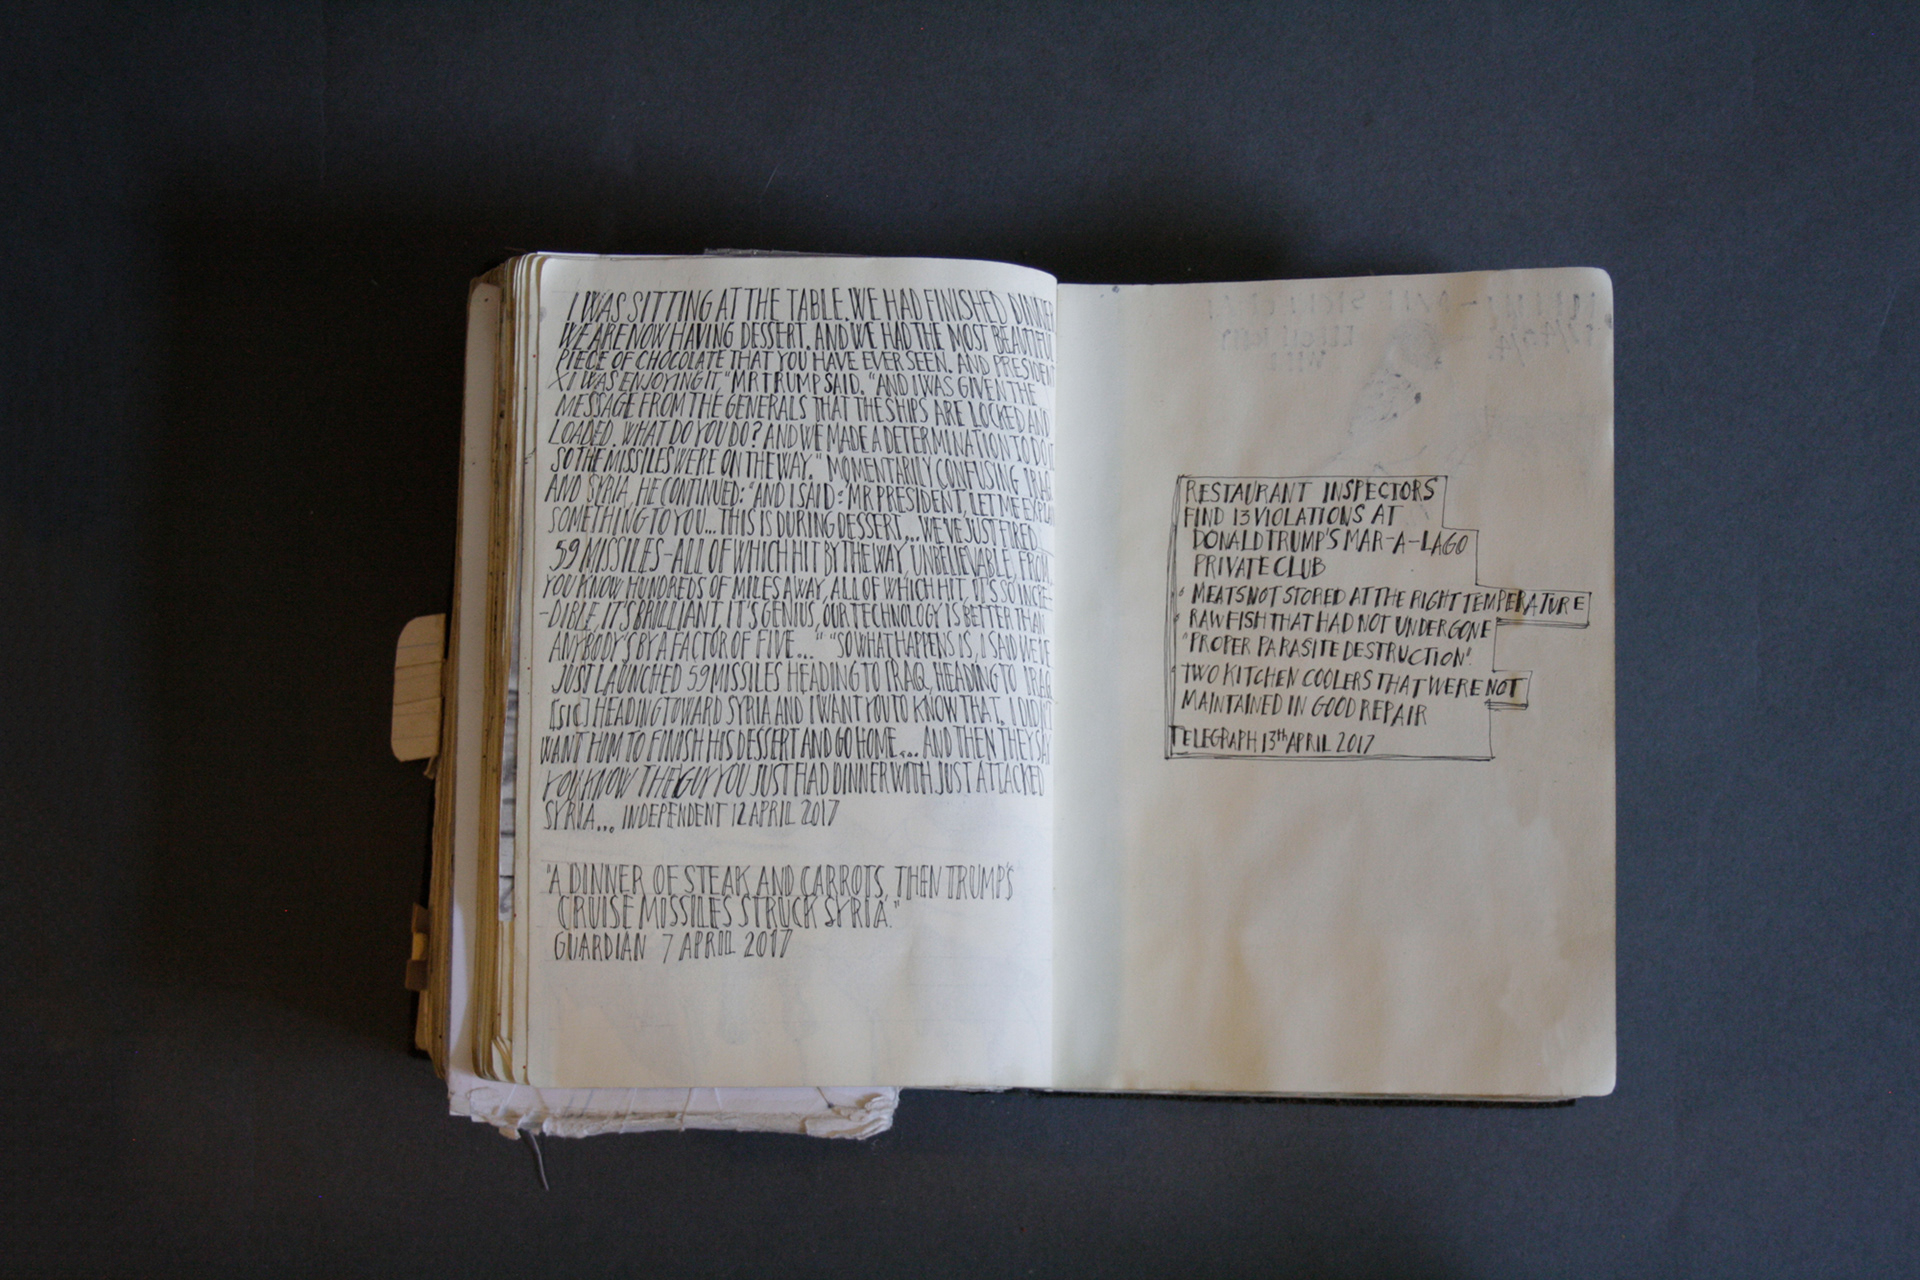 I WAS SITTING AT THE TABLE. WE HAD FINISHED DINNER
WE ARE NOW HAVING DESSERT. AND WE HAD THE MOST BEAUTIFUL
PIECE OF CHOCOLATE THAT YOU HAVE EVER SEEN. AND PRESIDENT
XI WAS ENJOYING IT." MR TRUMP SAID. "AND I WAS GIVEN THE
MESSAGE FROM THE GENERALS THAT THE SHIPS ARE LOCKED AND
LOADED. WHAT DO YOU DO? AND WE MADE A DETERMINATION TO DO IT
SO THE MISSILES WERE ON THE WAY." MOMENTARILY CONFUSING IRAQ
AND SYRIA, HE CONTINUED: "AND I SAID: MR PRESIDENT, LET ME EXPLAIN
SOMETHING TO YOU... THIS IS DURING DESSERT,... WE'VE JUST FIRED
59 MISSILES - ALL OF WHICH HIT BY THE WAY, UNBELIEVABLE, FROM,
YOU KNOW, HUNDREDS OF MILES AWAY, ALL OF WHICH HIT, IT'S SO INCRE-
-DIBLE, IT'S BRILLIANT, IT'S GENIUS, OUR TECHNOLOGY IS BETTER THAN
ANYBODY'S BY A FACTOR OF FIVE..." "SO WHAT HAPPENS IS, I SAID WE'VE
JUST LAUNCHED 59 MISSILES HEADING TO IRAQ, HEADING TO IRAQ
[SIC] HEADING TOWARD SYRIA AND I WANT YOU TO KNOW THAT. I DIDN'T
WANT HIM TO FINISH HIS DESSERT AND GO HOME... AND THEN THEY SAY
YOU KNOW THE GUY YOU JUST HAD DINNER WITH JUST ATTACKED
SYRIA... INDEPENDENT 12 APRIL 2017
"A DINNER OF STEAK AND CARROTS, THEN TRUMP'S
CRUISE MISSILES STRUCK SYRIA."
GUARDIAN 7 APRIL 2017
RESTAURANT INSPECTORS
FIND 13 VIOLATIONS AT
DONALD TRUMP'S MAR-A-LAGO
PRIVATE CLUB
• MEATS NOT STORED AT THE RIGHT TEMPERATURE
• RAW FISH THAT HAD NOT UNDERGONE
"PROPER PARASITE DESTRUCTION".
• TWO KITCHEN COOLERS THAT WERE NOT
MAINTAINED IN GOOD REPAIR
TELEGRAPH 13th APRIL 2017